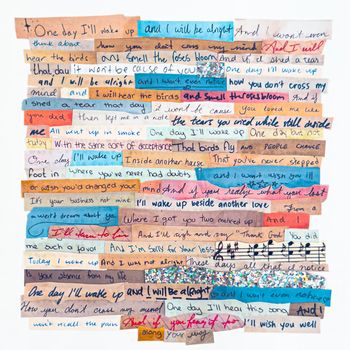 One day I'll wake up and I will be alright And I won't even
think about how you don't cross my mind And I will
hear the birds and smell the roses bloom And if I shed a tear
that day it won't be cause of you One day I'll wake up
and I will be alright and I won't even notice how you don't cross my
mind and I will hear the birds and smell the roses bloom And if I
shed a tear that day it won't be cause you loved me like
you did then left me in a note the tears you cried while still inside
me All went up in smoke One day I'll wake up One day but not
today With the same sort of acceptance That birds fly and people change
One day I'll wake up Inside another house That you've never stepped
foot in Where you've never had doubts and I won't wish you'll
or wish you'd changed your mind And if you realize what you lost
It's your business not mine I'll wake up beside another love from a
dream won't dream about you Where I got you two mixed up And I
I'll turn to him And I'll sigh and say "Thank God You did
me such a favor And I'm sorry for your loss
Today I woke up And I was not alright These days all that I notice
is your absence from my life
One day I'll wake up and I will be alright and I won't even notice
How you don't cross my mind One day I'll hear this song And I
won't recall the pain And if you think of me I'll wish you well
along your way